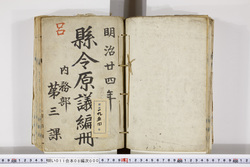 明治廿四年
縣令原議編冊
内務部
第三課